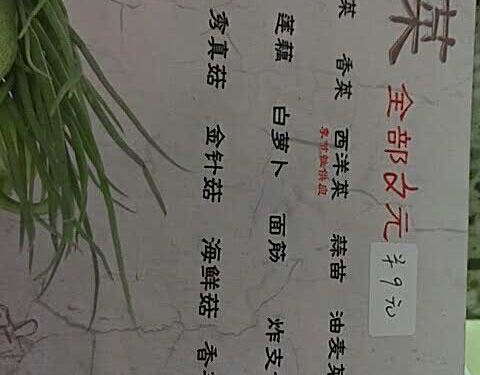 菜
全部 元
¥9元
菜 香菜 西洋菜 蒜苗 油麦菜
季节性供应
莲藕 白萝卜 面筋 炸支
秀真菇 金针菇 海鲜菇 香